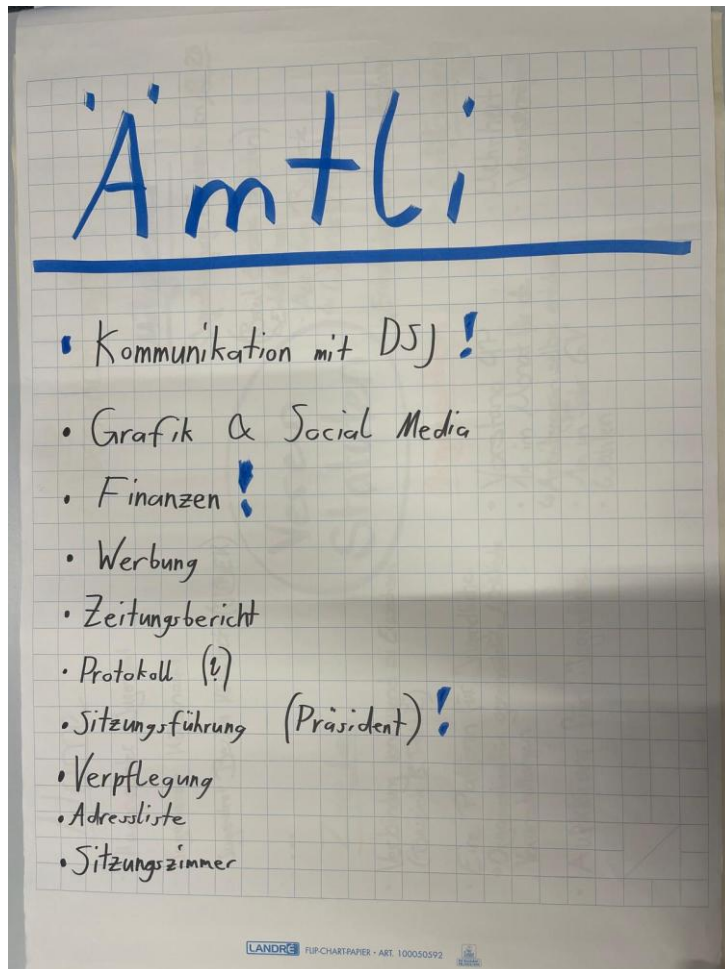 Ämtli
• Kommunikation mit DSJ !
• Grafik & Social Media
• Finanzen !
• Werbung
• Zeitungsbericht
• Protokoll (?)
• Sitzungsführung (Präsident) !
• Verpflegung
• Adressliste
• Sitzungszimmer
LANDRÉ FLIP-CHART-PAPIER · ART. 100050592